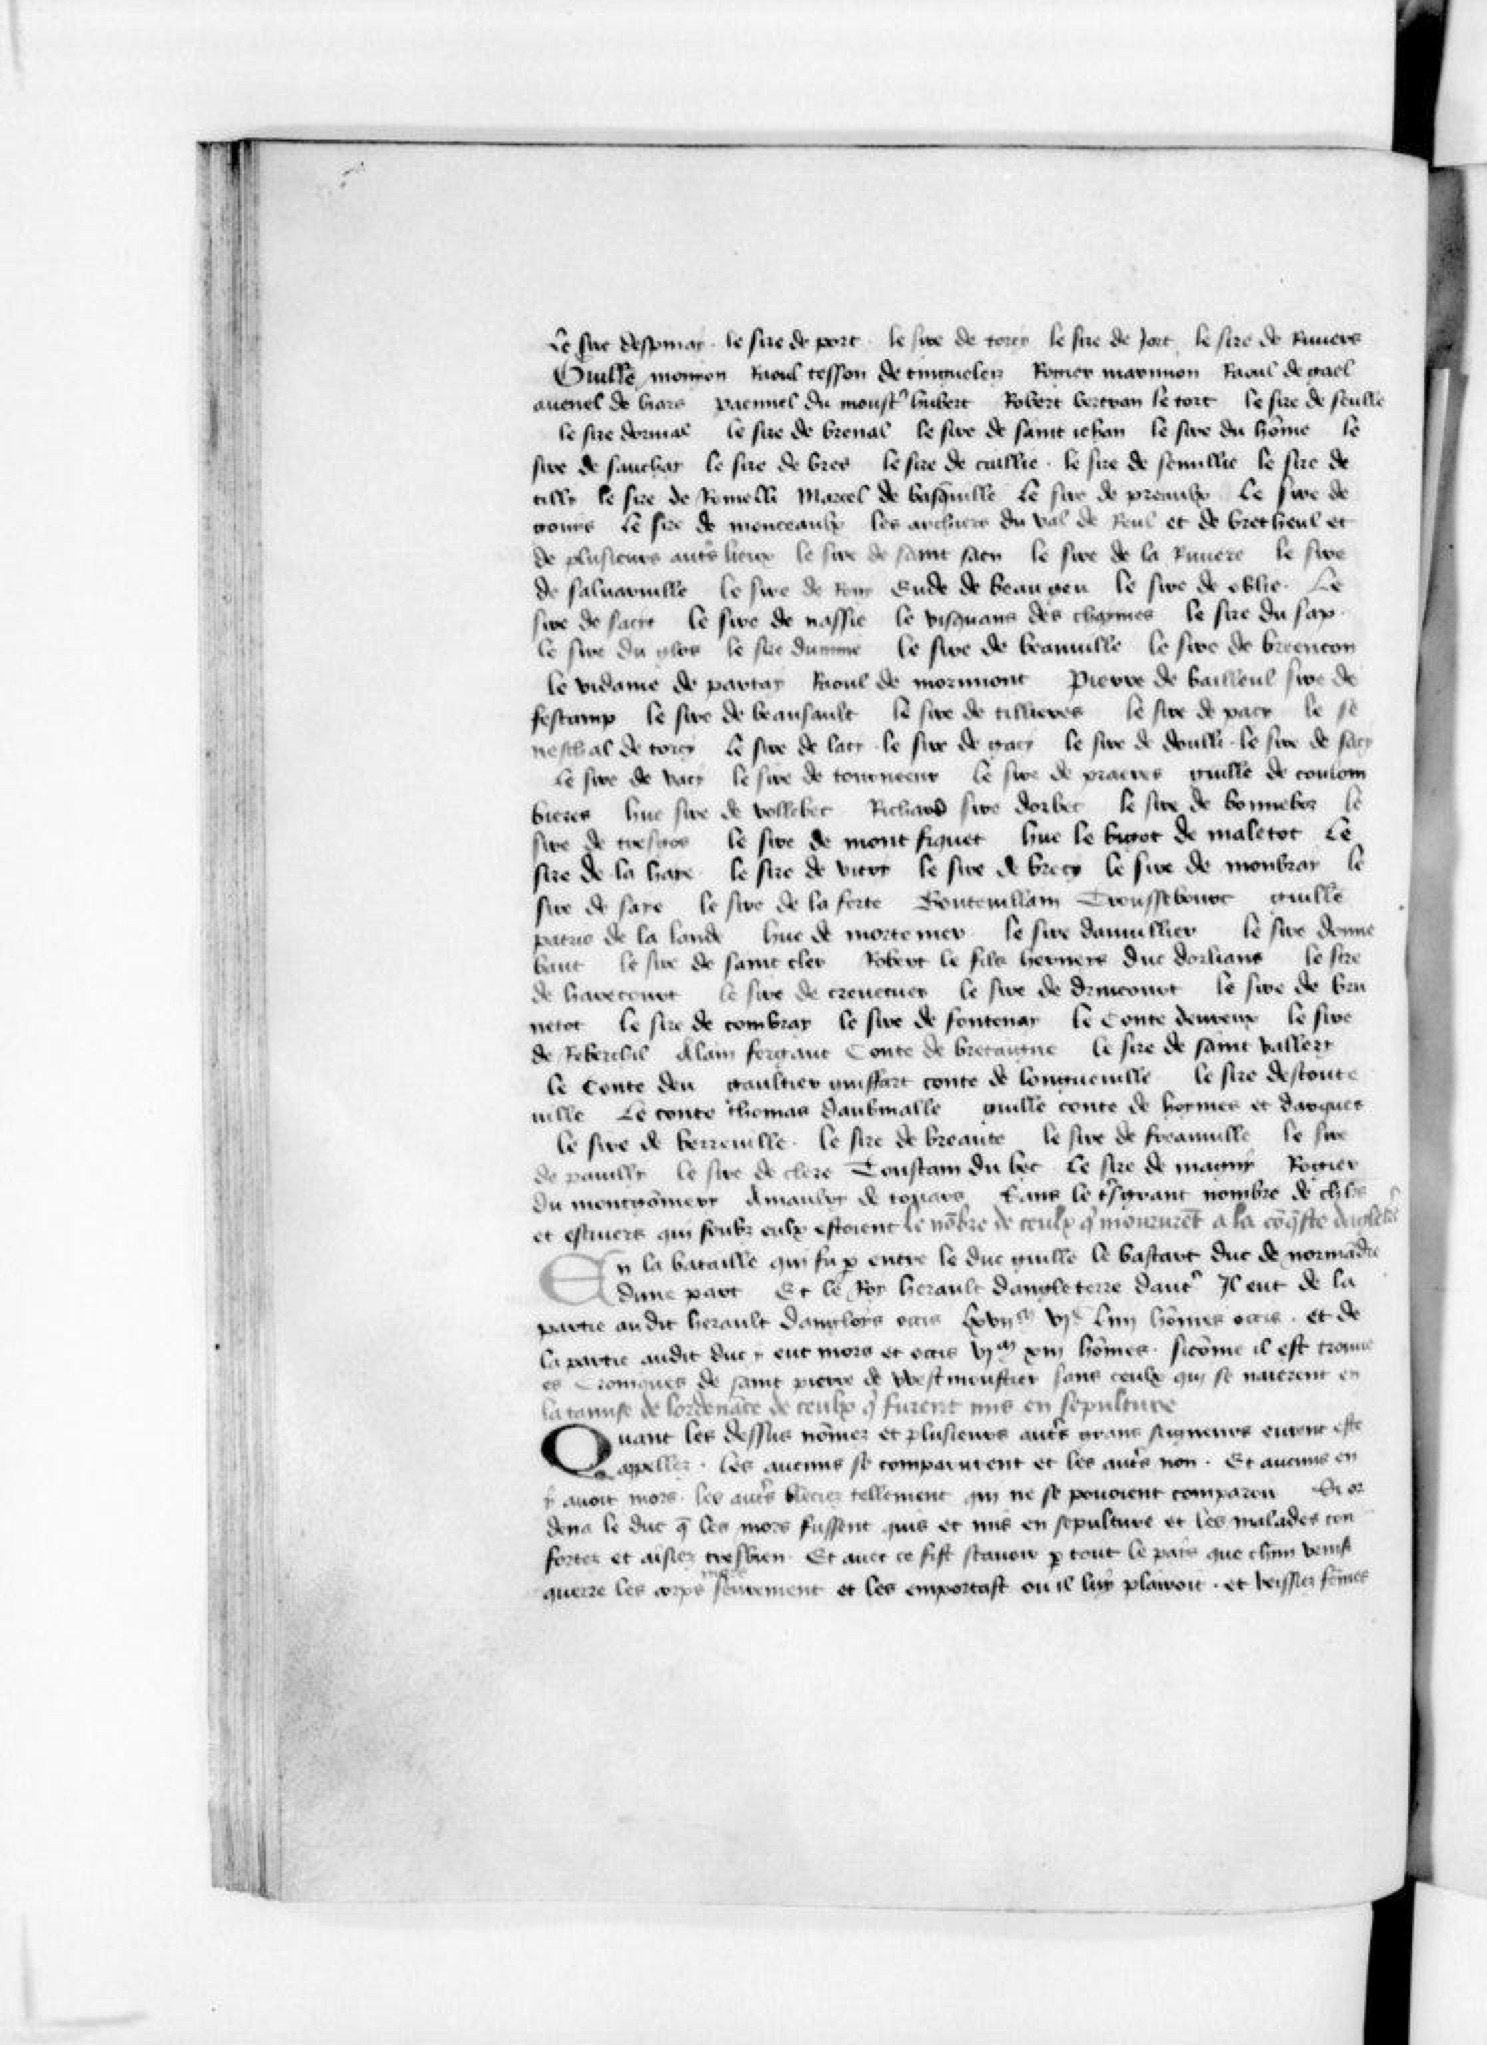 Le sire despinay . le sire de port . le sire de torcy le sire de Jort le sire de Riviers
Guille moyon Raoul tesson de tinguelez Rogier marmion Raoul de gael
avenel de biars paennel du moustr hubert Robert bertran le tort le sire de seulle
le sire dorival le sire de breval le sire de saint iehan le sire du home le
sire de sauchay le sire de bres le sire de cuillie . le sire de semillie le sire de
tilly le sire de Romelli Martel de basquille Le sire de preaulx Le sire de
gouis Le sire de monceaulx les archiers du val de Reul et de bretheul et
de plusieurs autrs lieux le sire de saint saen le sire de la Riviere le sire
de salnarville le sire de Rony Eude de beaugeu le sire de oblie . Le
sire de sacie le sire de nassie le visquans des charmes le sire du sap .
le sire du glos le sire de beauville le sire de breencon
le vidame de partay Raoul de mormont Pierre de bailleul sire de
festamp le sire de beausault le sire de tillieres le sire de pacy le se
neschal de torcy Le sire de lacy . le sire de gacy le sire de doulli . le sire de sacy
Le sire de vacy le sire de tourneeur le sire de praeres guille de coulom
bieres hue sire de vollebec Richard sire dorbec le sire de bonneboz le
sire de tresgos le sire de mont fiquet hue le bigot de maletot Le
sire de la haye . le sire de vitry le sire de brecy le sire de monbray le
sire de saye le sire de la ferte Boutevillam Troussebout guille
patric de la lande hue de mortemer le sire dauvillier le sire donne
baut le sire de saint cler Robert le filz herneys duc dorlians le sire
de harecourt le sire de crevecuer le sire de drincourt le sire de bru
netot le sire de combray le sire de fontenay le Conte devreux le sire
de Rebercil Alain fergant Conte de bretaigne le sire de saint vallery
le Conte deu gaultier guiffart conte de longueville le sire destoute
uille Le conte thomas daubmalle guille conte de hoymes et darques
le sire de berreville . le sire de breaute le sire de freauville le sire
de pavilly le sire de clere Toustam du bec Le sire de magny Rogier
du montgomery Amaulry de touars Sans le trsgrant nombre de chlrs
et escuiers qui soubz eulx estoient le nobre de ceulx q mourŭret a la coqste dagletre
En la bataille qui fu p entre le duc guille le bastart duc de normadie
dune part Et le Roy herault dangleterre dautr Il eut de la
partie audit herault danglois occis lxviim vic Liiii homes occis . et de
la partie audit duc y eut mors et occis vim xiii homes . sicome il est trouue
es Croniques de saint pierre de westmoustier sans ceulx qui se naierent en
la tamise de lordenace de ceulx q furent mis en sepulture
Quant les dessus nomez et plusieurs autrs grans seigneurs eurent este
appellez . les aucuns se comparurent et les autrs non . Et aucuns en
y avoit mors . les autrs bleciez tellement qui ne se povoient comparoir Si or
dena le duc q les mors fussent quis et mis en sepulture et les malades con
fortez et aisiez tresbien . Et avec ce fist scavoir p tout le pais que chun venist
querre les corps mors seurement et les emportast ou il luy plairoit . et veissiez femes